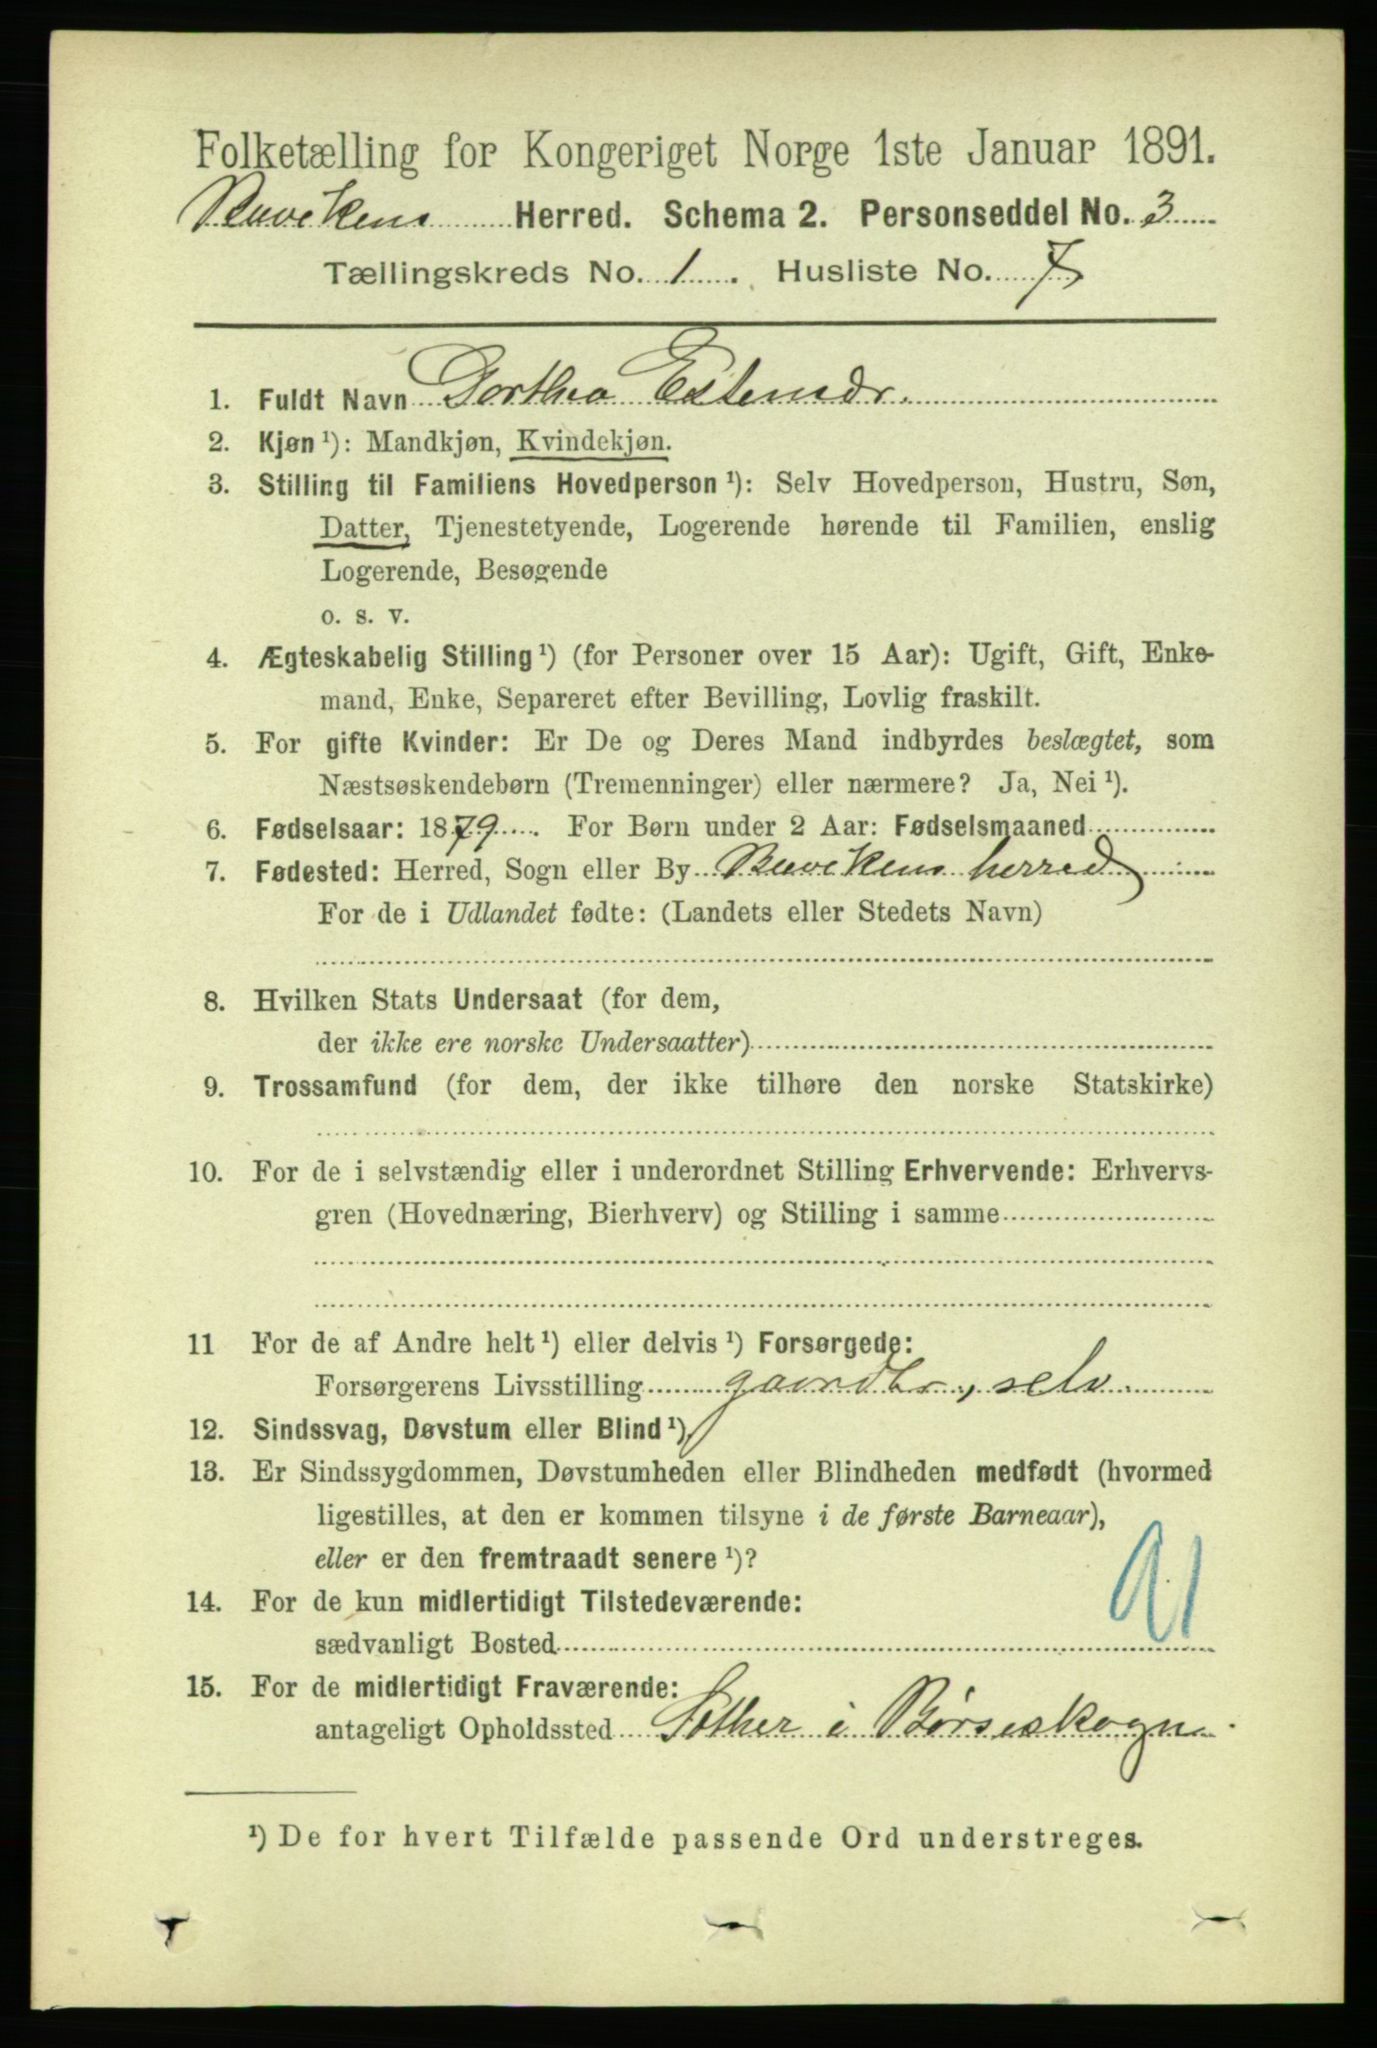 Folketælling for Kongeriget Norge 1ste Januar 1891.
Buvikens Herred. Schema 2. Personseddel No. 3
Tællingskreds No. 1. Husliste No. 7
1. Fuldt Navn Dorthea Estensdr.
2. Kjøn ¹): Mandkjøn, Kvindekjøn.
3. Stilling til Familiens Hovedperson ¹): Selv Hovedperson, Hustru, Søn,
Datter, Tjenestetyende, Logerende hørende til Familien, enslig
Logerende, Besøgende
o. s. v.
4. Ægteskabelig Stilling ¹) (for Personer over 15 Aar): Ugift, Gift, Enke-
mand, Enke, Separeret efter Bevilling, Lovlig fraskilt.
5. For gifte Kvinder: Er De og Deres Mand indbyrdes beslægtet, som
Næstsøskendebørn (Tremenninger) eller nærmere? Ja, Nei ¹).
6. Fødselsaar: 1879. For Børn under 2 Aar: Fødselsmaaned
7. Fødested: Herred, Sogn eller By Buvikens herred
For de i Udlandet fødte: (Landets eller Stedets Navn)
8. Hvilken Stats Undersaat (for dem,
der ikke ere norske Undersaatter)
9. Trossamfund (for dem, der ikke tilhøre den norske Statskirke)
10. For de i selvstændig eller i underordnet Stilling Erhvervende: Erhvervs-
gren (Hovednæring, Bierhverv) og Stilling i samme
11 For de af Andre helt ¹) eller delvis ¹) Forsørgede:
Forsørgerens Livsstilling gaardbr., selv.
12. Sindssvag, Døvstum eller Blind ¹),
13. Er Sindssygdommen, Døvstumheden eller Blindheden medfødt (hvormed
ligestilles, at den er kommen tilsyne i de første Barneaar),
eller er den fremtraadt senere ¹)?
91
14. For de kun midlertidigt Tilstedeværende:
sædvanligt Bosted
15. For de midlertidigt Fraværende:
antageligt Opholdssted i Børseskogn.
¹) De for hvert Tilfælde passende Ord understreges.